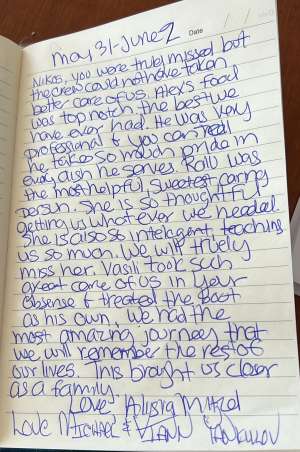 Date / /
May 31-June 2
Nikos, you were truly missed but
the crew could not have taken
better care of us. Alex's food
was top notch, the best we
have ever had. He was very
professional & you can tell
he takes so much pride in
every dish he serves. Rallu was
the most helpful, sweetest caring
person. She is so thoughtful
getting us whatever we needed.
She is also so intelegent, teaching
us so much. We will truely
miss her. Vasili took such
great care of us in your
absense & treated the boat
as his own. We had the
most amazing journey that
we will remember the rest of
our lives. This brought us closer
as a family.
Love Alisia
Love Michael &